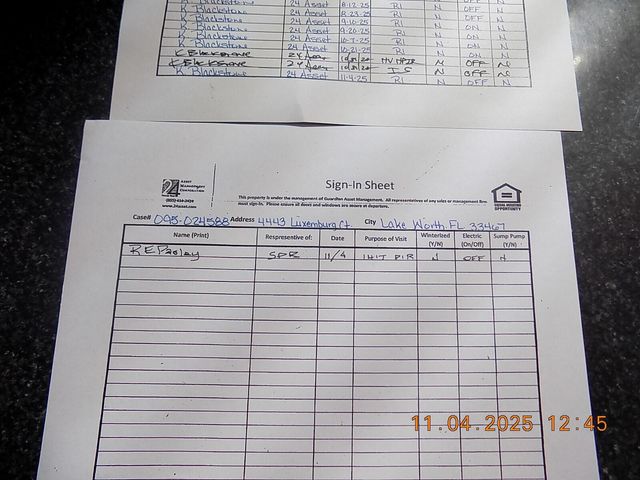 K Blackstone 24 Asset 8-12-25 RI N OFF N
K Blackstone 24 Asset RI N OFF N
K Blackstone 24 Asset 9-10-25 RI N ON N
K Blackstone 24 Asset 9-20-25 RI N ON N
K Blackstone 24 Asset 10-7-25 RI N ON N
K Blackstone 24 Asset 10-21-25 RI N ON N
N OFF
N OFF
K Blackstone 24 Asset 11-4-25 RI N OFF N
24 ASSET MANAGEMENT CORPORATION
www.24asset.com
Sign-In Sheet
This property is under the management of Guardian Asset Management. All representatives of any sales or management firm
must sign-in. Please ensure all doors and windows are secure at departure.
EQUAL HOUSING OPPORTUNITY
Case# 095-024588 Address 4443 Luxemburg Ct. City Lake Worth, FL 33467
Name (Print) Respresentive of: Date Purpose of Visit Winterized (Y/N) Electric (On/Off) Sump Pump (Y/N)
SPR 11/4 N OFF N
11.04.2025 12:45